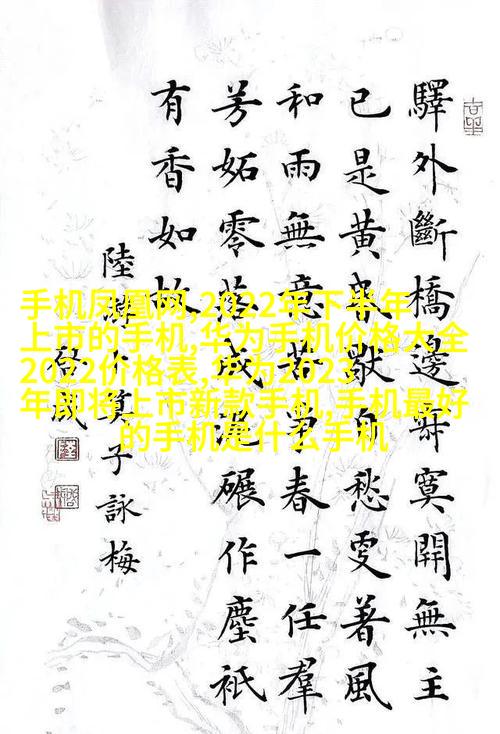 驛外斷橋邊寂寞開無主
已是黃昏獨自愁更著風
和雨無意苦爭春一任羣
芳妬零落成泥碾作塵祇
有香如故
陸游卜算子詠梅
手机凤凰网,2022年下半年
上市的手机,华为手机价格大全
2022价格表,华为2023
年即将上市新款手机,手机最好
的手机是什么手机